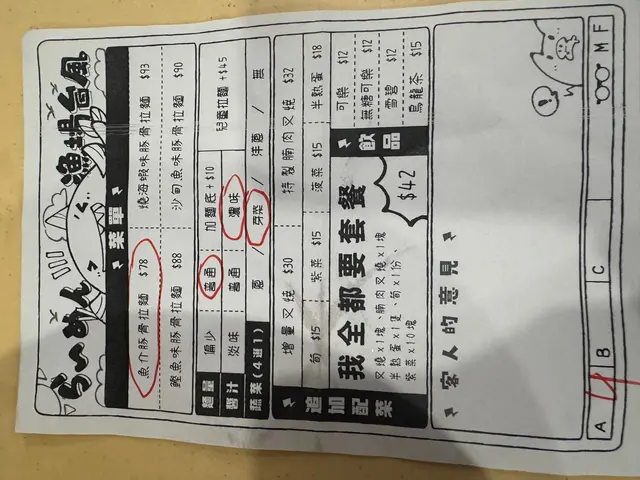 らーめん 漁場台風
菜單
魚介豚骨拉麵 $78 燒海蝦味豚骨拉麵 $93
鰹魚味豚骨拉麵 $88 沙甸魚味豚骨拉麵 $90
麵量 偏少 普通 加麵底+$10 兒童拉麵+$45
醬汁 淡味 普通 濃味
蔬菜(4選1) 蔥 / 芽菜 / 洋蔥 / 無
追加配菜
增量叉燒 $30 特製腩肉叉燒 $32
筍 $15 紫菜 $15 菠菜 $15 半熟蛋 $18
我全都要套餐 $42
叉燒x1塊、腩肉叉燒x1塊、
半熟蛋x1隻、筍x1份、
紫菜x10塊
飲品
可樂 $12
無糖可樂 $12
雪碧 $12
烏龍茶 $15
客人的意見
A 4 B C M F